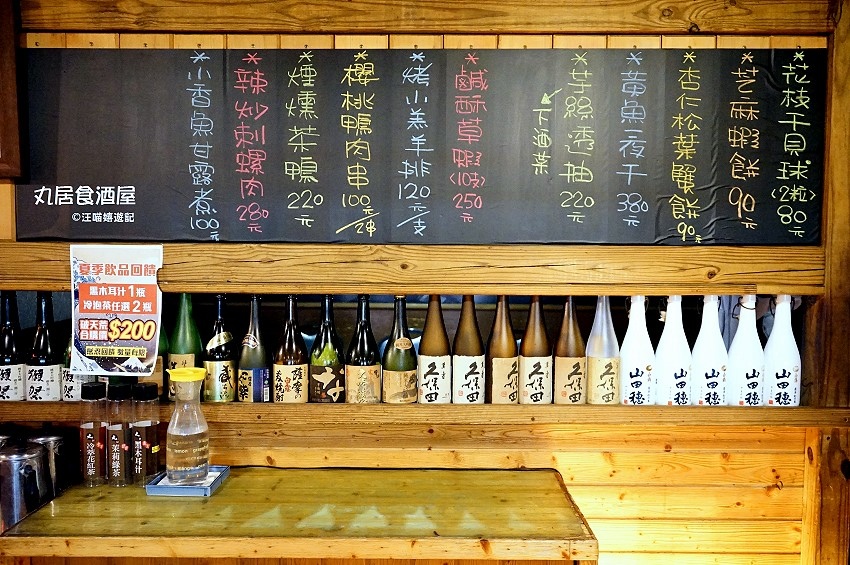 *花枝干貝球(2粒)80元
*芝麻蝦餅90元
*杏仁松葉蟹餅90元
*黃魚一夜干380元
*芋絲透抽220元
下酒菜
*鹹酥草蝦(10支)250元
*烤小羔羊排120元/支
*櫻桃鴨肉串100元/串
*煙燻茶鴨220元
*辣炒刺螺肉280元
*小香魚甘露煮100元
丸居食酒屋
©汪喵嬉遊記
夏季飲品回饋
黑木耳汁1瓶
冷泡茶任選2瓶
破天荒
$200
獺祭
獺祭
久保田
久保田
久保田
久保田
久保田
久保田
山田穂
山田穂
山田穂
山田穂
山田穂
冷萃花紅茶
茉莉綠茶
黑木耳汁